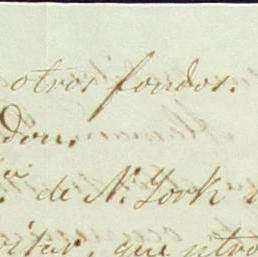 otros fondos.
don.
de N. York
que otro